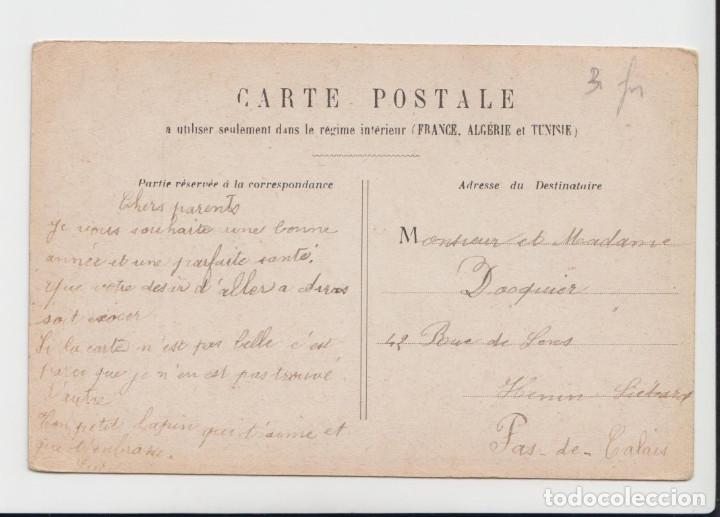 3 fr
CARTE POSTALE
a utiliser seulement dans le régime intérieur (FRANCE, ALGÉRIE et TUNISIE)
Partie réservée à la correspondance
Chers parents
Je vous souhaite une bonne
année et une parfaite santé.
que votre desir d'aller a Arras
soit exocer
Si la carte n'est pas belle c'est
parce que je n'en est pas trouvé
d'autre
Ton petit lapin qui t'aime et
que t'embrasse.
Adresse du Destinataire
Monsieur et Madame
Docquier
42 Rue de Lens
Henin Liétard
Pas-de-Calais
todocoleccion.net